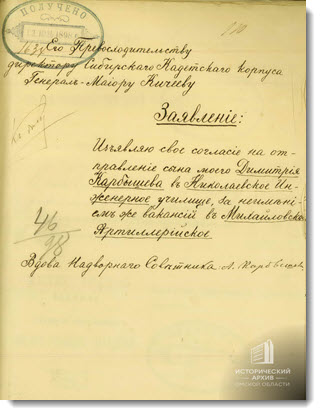 ПОЛУЧЕНО
Его Превосходительству
директору Сибирскаго Кадетскаго Корпуса
Генералъ-Маіору Кичееву
Заявленіе:
Изъявляю свое согласіе на от-
правленіе сына моего Димитрія
Карбышева въ Николаевское Ин-
женерное училище, за неимѣні-
емъ же вакансій въ Михайловско
Артиллерійское
46
98
Вдова Надворнаго Совѣтника А. Карбышева
ИСТОРИЧЕСКИЙ
АРХИВ
ОМСКОЙ ОБЛАСТИ